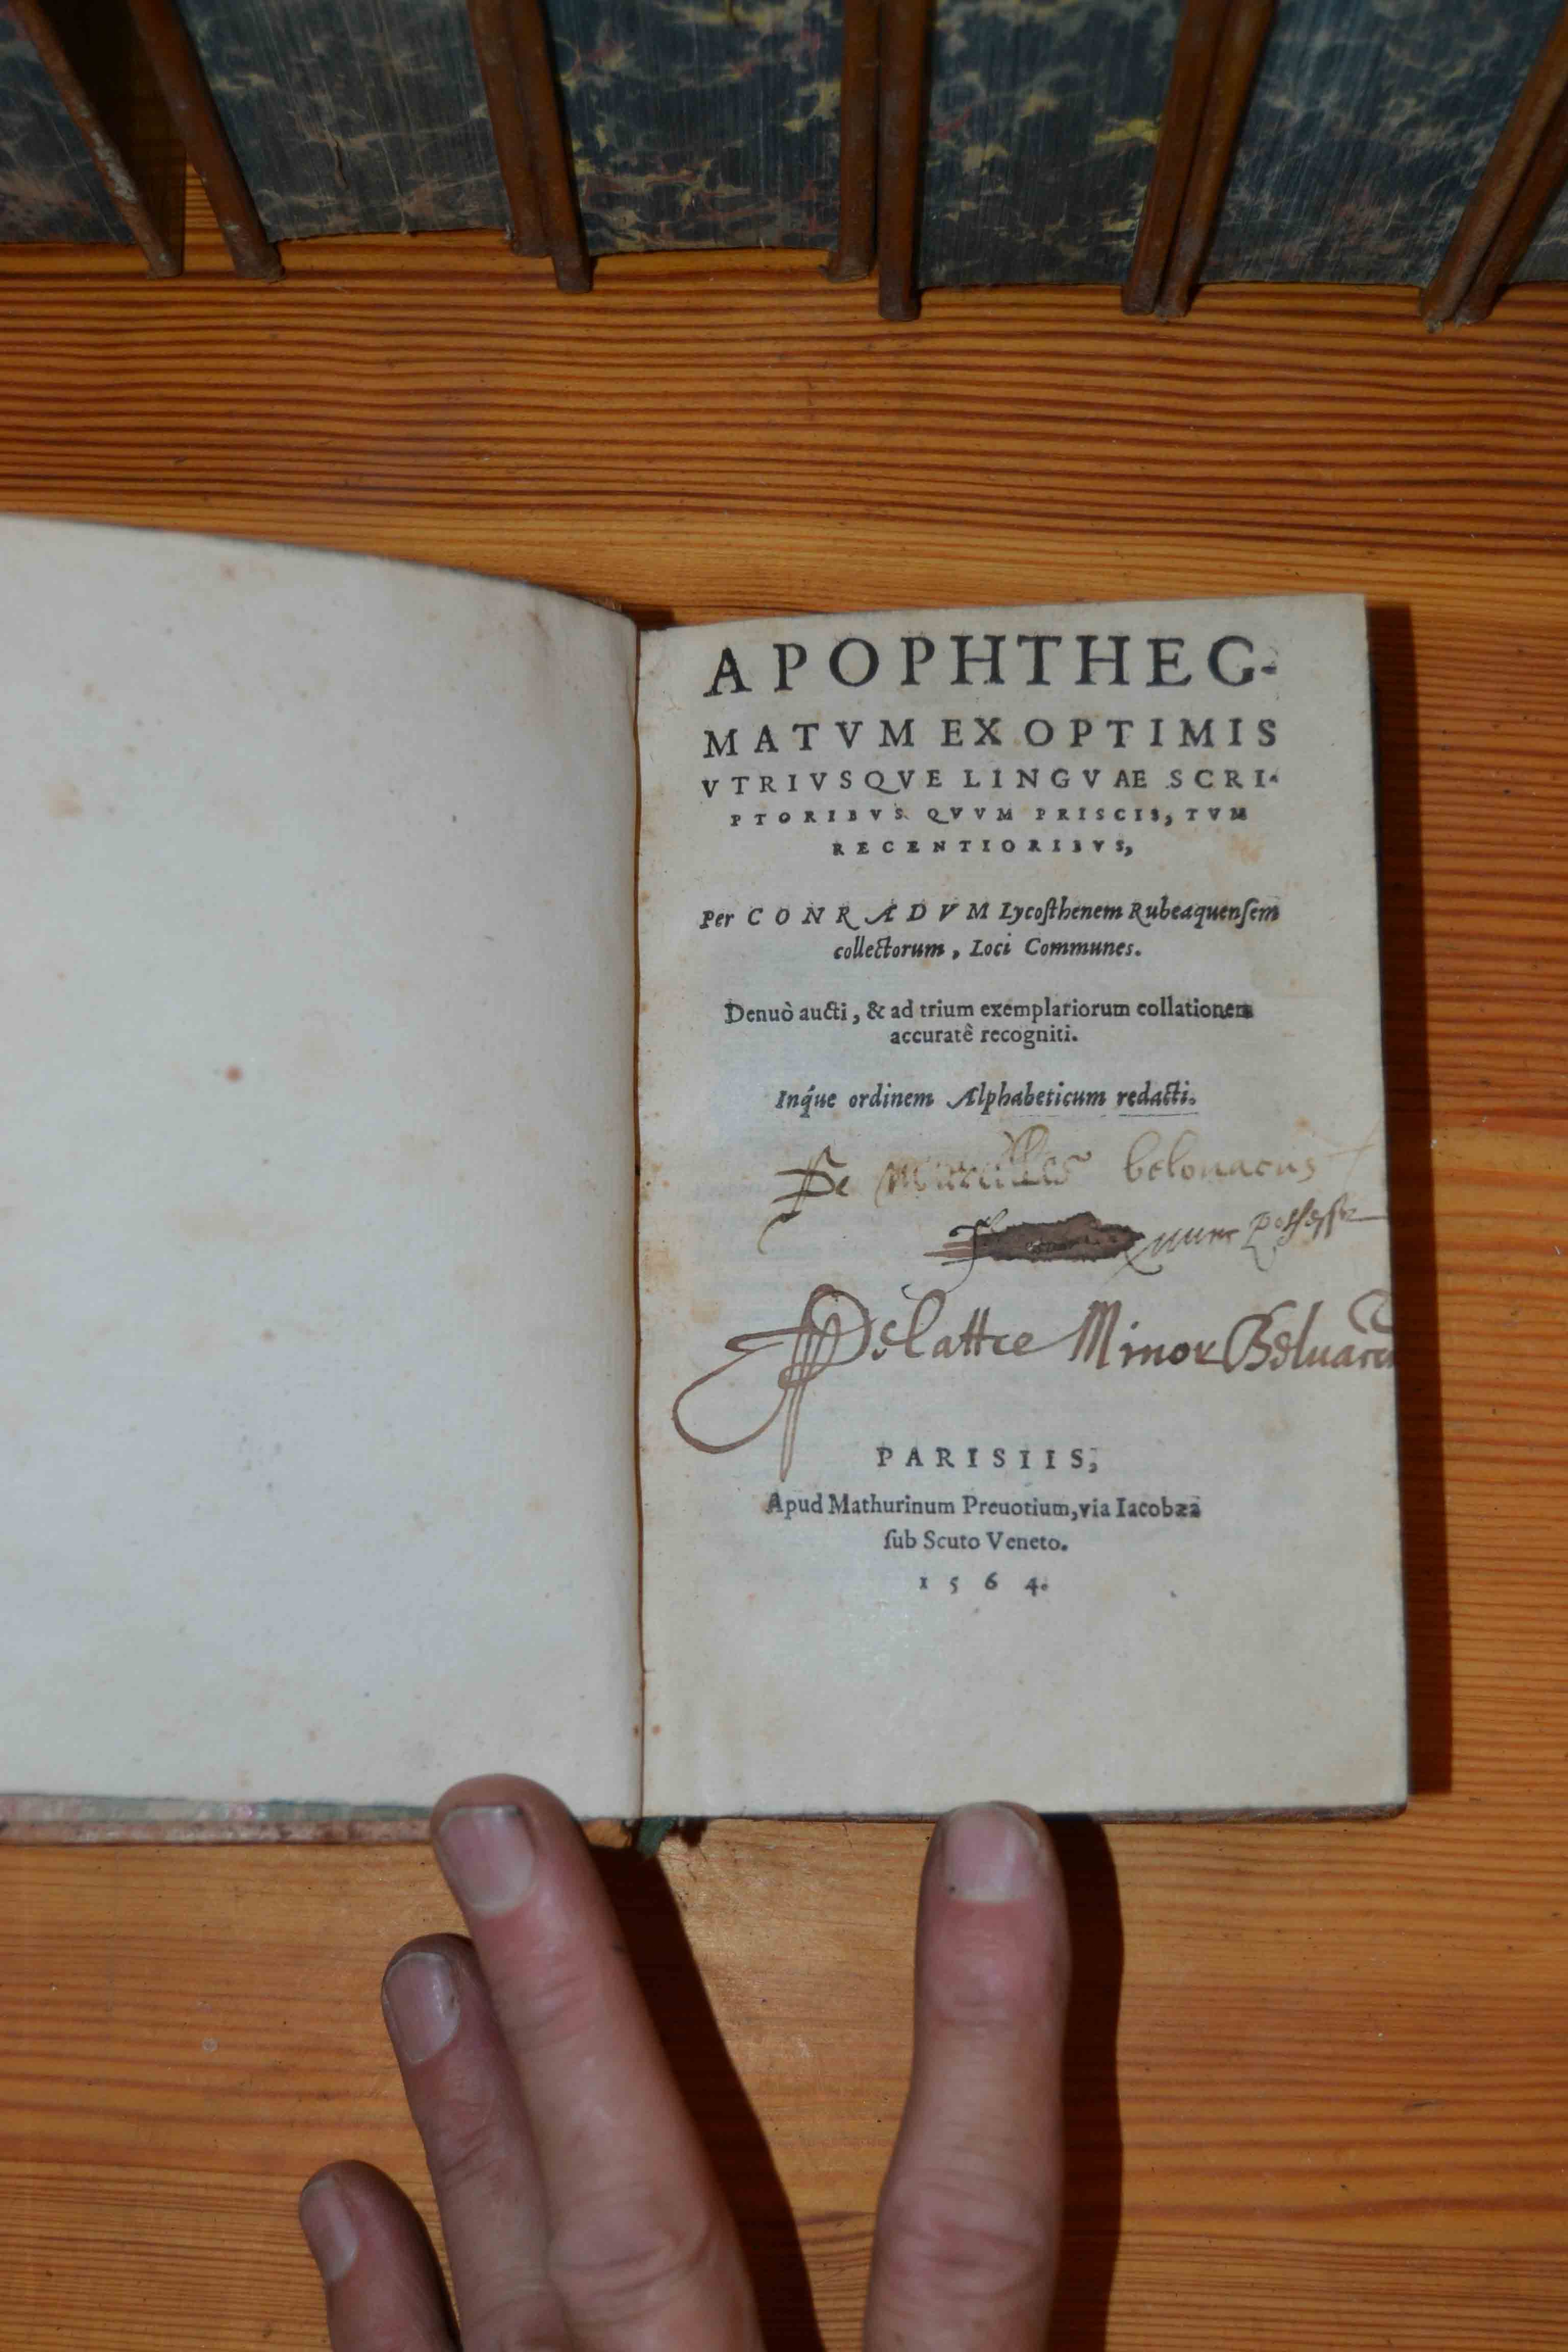 APOPHTHEG-
MATVM EX OPTIMIS
VTRIVSQVE LINGVAE SCRI-
PTORIBVS QVVM PRISCIS, TVM
RECENTIORIBVS,
Per CONRADVM Lycosthenem Rubeaquensem
collectorum, Loci Communes.
Denuò aucti, & ad trium exemplariorum collationem
accuratè recogniti.
Inq́ue ordinem Alphabeticum redacti.
De
nunc
Delattre Minor
PARISIIS,
Apud Mathurinum Preuotium, via Iacobæa
sub Scuto Veneto.
1564.